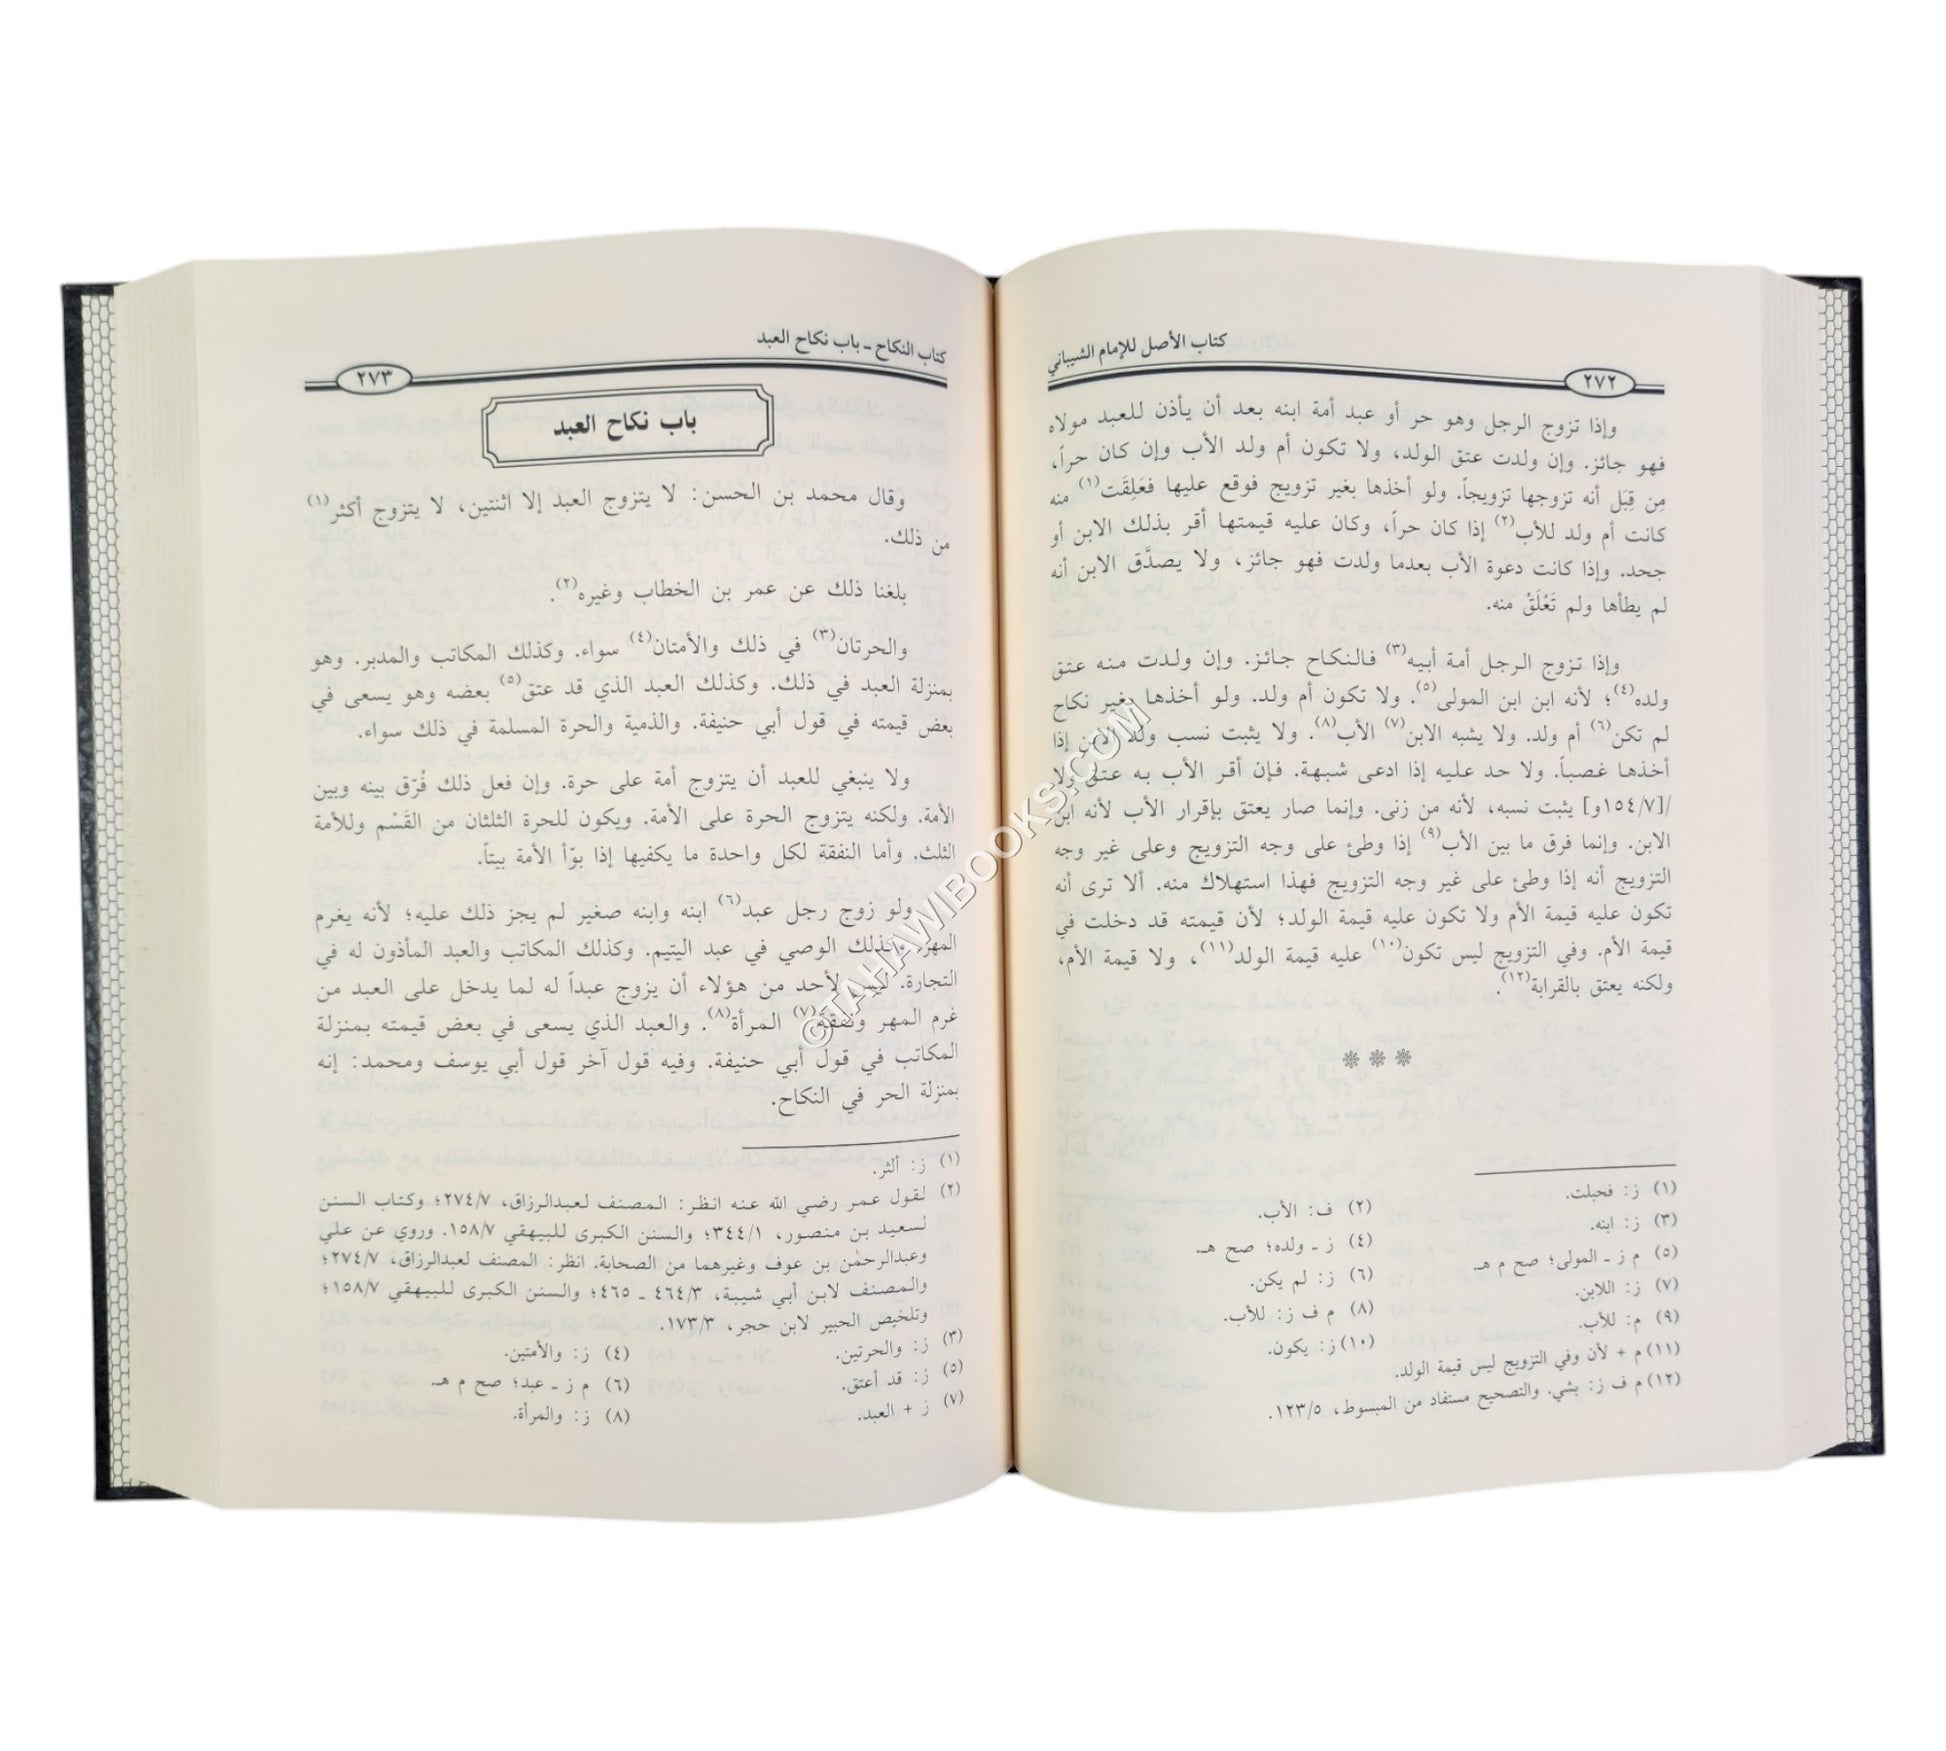 كتاب الأصل للإمام الشيباني
٢٧٢
وإذا تزوج الرجل وهو حر أو عبد أمة ابنه بعد أن يأذن للعبد مولاه
فهو جائز. وإن ولدت عتق الولد، ولا تكون أم ولد الأب وإن كان حراً،
مِن قِبَل أنه تزوجها تزويجاً. ولو أخذها بغير تزويج فوقع عليها فعَلِقَت(١) منه
كانت أم ولد للأب(٢) إذا كان حراً، وكان عليه قيمتها أقر بذلك الابن أو
جحد. وإذا كانت دعوة الأب بعدما ولدت فهو جائز، ولا يصدَّق الابن أنه
لم يطأها ولم تَعْلَقْ منه.
وإذا تزوج الرجل أمة أبيه(٣) فالنكاح جائز. وإن ولدت منه عتق
ولده(٤)؛ لأنه ابن ابن المولى(٥). ولا تكون أم ولد. ولو أخذها بغير نكاح
لم تكن(٦) أم ولد. ولا يشبه الابن(٧) الأب(٨). ولا يثبت نسب ولد الابن إذا
أخذها غصباً. ولا حد عليه إذا ادعى شبهة. فإن أقر الأب به عتق ولا
/[١٥٤/٧و] يثبت نسبه، لأنه من زنى. وإنما صار يعتق بإقرار الأب لأنه ابن
الابن. وإنما فرق ما بين الأب(٩) إذا وطئ على وجه التزويج وعلى غير وجه
التزويج أنه إذا وطئ على غير وجه التزويج فهذا استهلاك منه. ألا ترى أنه
تكون عليه قيمة الأم ولا تكون عليه قيمة الولد؛ لأن قيمته قد دخلت في
قيمة الأم. وفي التزويج ليس تكون(١٠) عليه قيمة الولد(١١)، ولا قيمة الأم،
ولكنه يعتق بالقرابة(١٢).
(١) ز: فحبلت. (٢) ف: الأب.
(٣) ز: ابنه. (٤) ز ـ ولده؛ صح هـ.
(٥) م ز ـ المولى؛ صح م هـ. (٦) ز: لم يكن.
(٧) ز: اللابن. (٨) م ف ز: للأب.
(٩) م: للأب. (١٠) ز: يكون.
(١١) م + لأن وفي التزويج ليس قيمة الولد.
(١٢) م ف ز: بشي. والتصحيح مستفاد من المبسوط، ١٢٣/٥.
كتاب النكاح ـ باب نكاح العبد
٢٧٣
باب نكاح العبد
وقال محمد بن الحسن: لا يتزوج العبد إلا اثنتين، لا يتزوج أكثر(١)
من ذلك.
بلغنا ذلك عن عمر بن الخطاب وغيره(٢).
والحرتان(٣) في ذلك والأمتان(٤) سواء. وكذلك المكاتب والمدبر. وهو
بمنزلة العبد في ذلك. وكذلك العبد الذي قد عتق(٥) بعضه وهو يسعى في
بعض قيمته في قول أبي حنيفة. والذمية والحرة المسلمة في ذلك سواء.
ولا ينبغي للعبد أن يتزوج أمة على حرة. وإن فعل ذلك فُرّق بينه وبين
الأمة. ولكنه يتزوج الحرة على الأمة. ويكون للحرة الثلثان من القَسْم وللأمة
الثلث. وأما النفقة لكل واحدة ما يكفيها إذا بوّأ الأمة بيتاً.
ولو زوج رجل عبد(٦) ابنه وابنه صغير لم يجز ذلك عليه؛ لأنه يغرم
المهر. وكذلك الوصي في عبد اليتيم. وكذلك المكاتب والعبد المأذون له في
التجارة. ليس لأحد من هؤلاء أن يزوج عبداً له لما يدخل على العبد من
غرم المهر ونفقة(٧) المرأة(٨). والعبد الذي يسعى في بعض قيمته بمنزلة
المكاتب في قول أبي حنيفة. وفيه قول آخر قول أبي يوسف ومحمد: إنه
بمنزلة الحر في النكاح.
(١) ز: ألثر.
(٢) لقول عمر رضي الله عنه انظر: المصنف لعبدالرزاق، ٢٧٤/٧؛ وكتاب السنن
لسعيد بن منصور، ٣٤٤/١؛ والسنن الكبرى للبيهقي ١٥٨/٧. وروي عن علي
وعبدالرحمٰن بن عوف وغيرهما من الصحابة. انظر: المصنف لعبدالرزاق، ٢٧٤/٧؛
والمصنف لابن أبي شيبة، ٤٦٤/٣ ـ ٤٦٥؛ والسنن الكبرى للبيهقي ١٥٨/٧؛
وتلخيص الحبير لابن حجر، ١٧٣/٣.
(٣) ز: والحرتين. (٤) ز: والأمتين.
(٥) ز: قد أعتق. (٦) م ز ـ عبد؛ صح م هـ.
(٧) ز + العبد. (٨) ز: والمرأة.
©TAHAWIBOOKS.COM